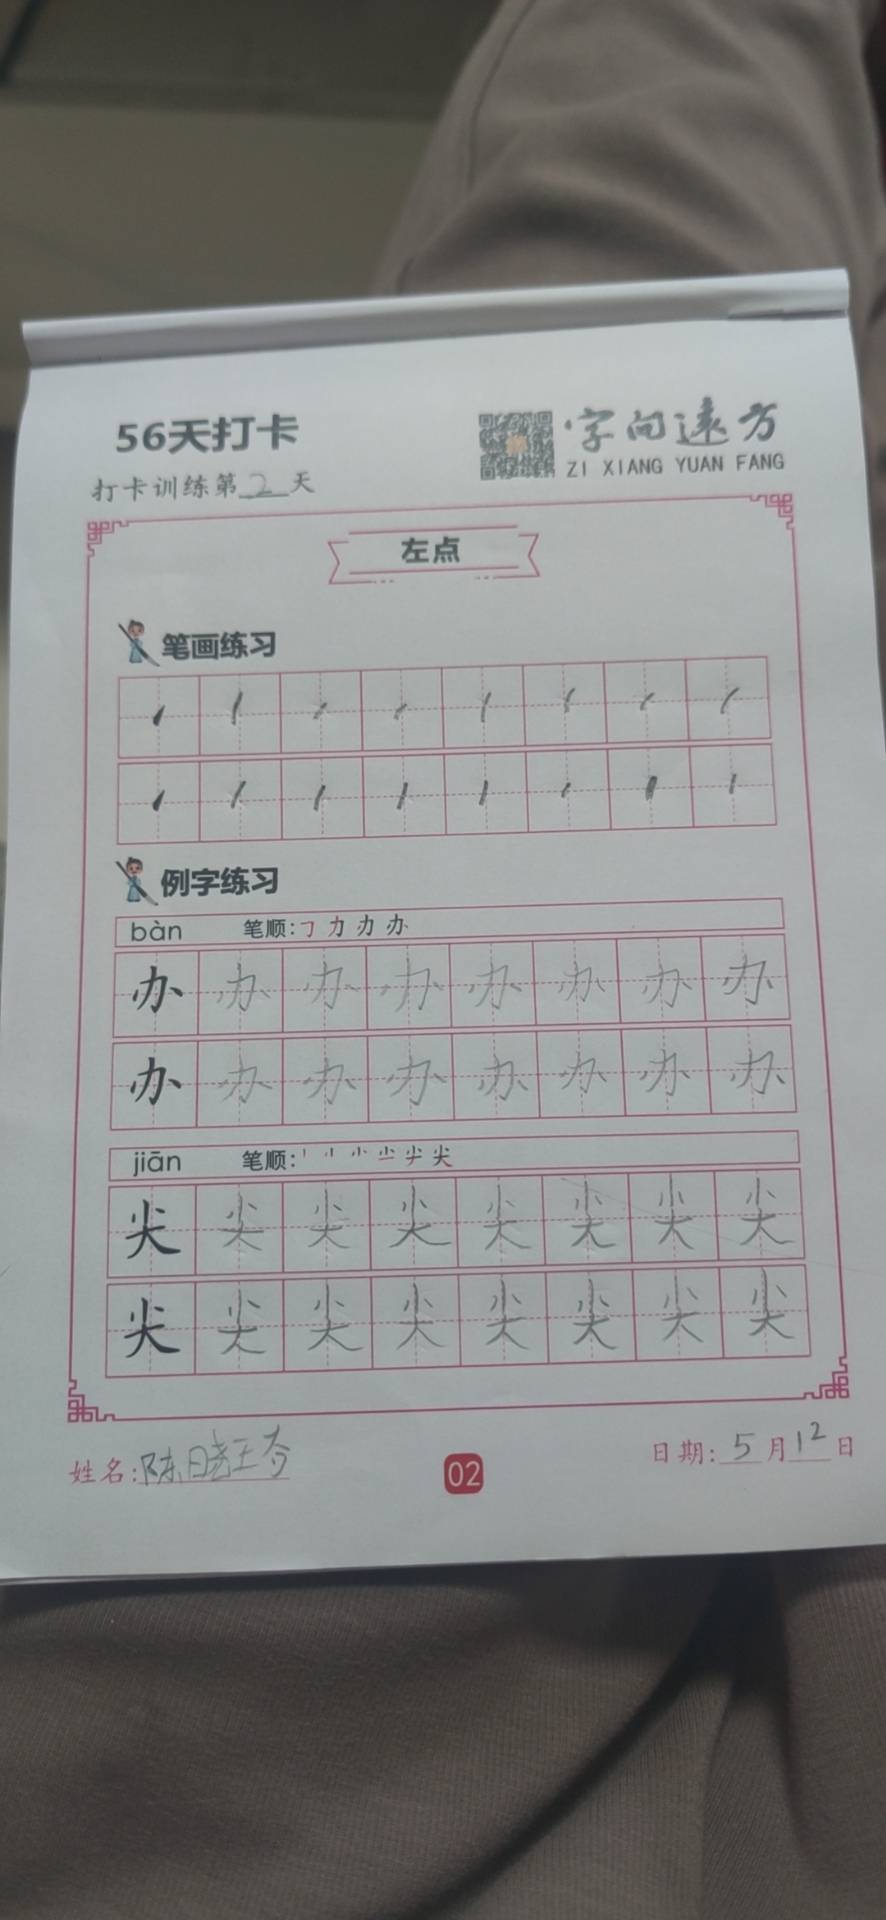 56天打卡
字向远方
ZI XIANG YUAN FANG
打卡训练第2天
左点
笔画练习
例字练习
bàn 笔顺:㇆力办办
办办办办办办办办
办办办办办办办办
jiān 笔顺:尖
尖尖尖尖尖尖尖尖
尖尖尖尖尖尖尖尖
姓名:陈晓
02
日期:5月12日